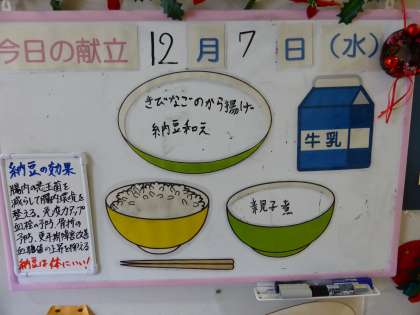 今日の献立 12月7日(水)
きびなごのから揚げ
納豆和え
牛乳
納豆の効果
腸内の悪玉菌を
減らして腸内環境を
整える、免疫力アップ
血栓の予防、骨粗の
予防、更年期障害改善
血糖値の上昇を抑える
納豆は体にいい!